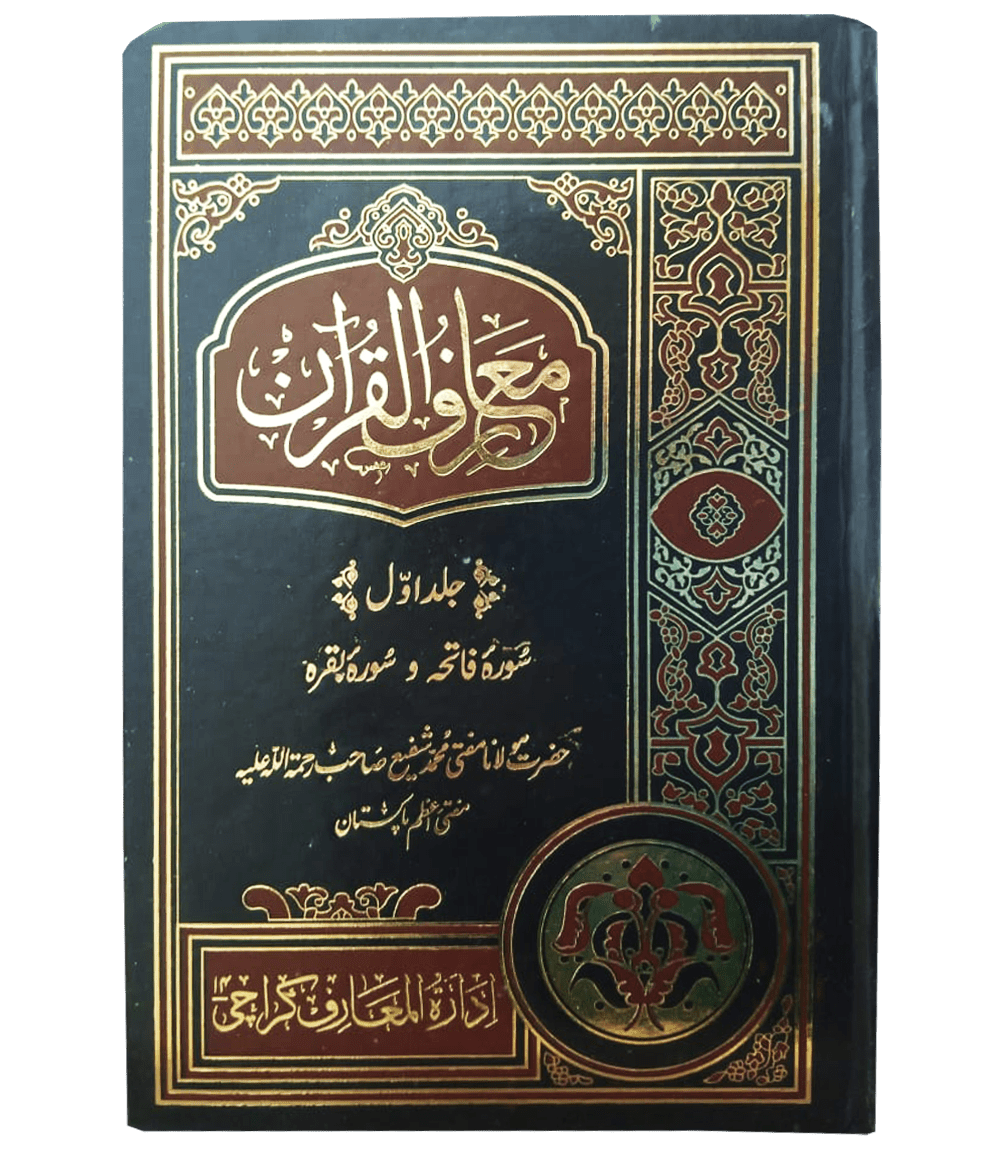 معارف القرآن
جلد اوّل
سُورۂ فاتحہ و سُورۂ بقرہ
حضرت مولانا مفتی محمد شفیع صاحب رحمۃ اللہ علیہ
مفتی اعظم پاکستان
اِدَارَۃُ المَعَارِف کراچی ۱۴